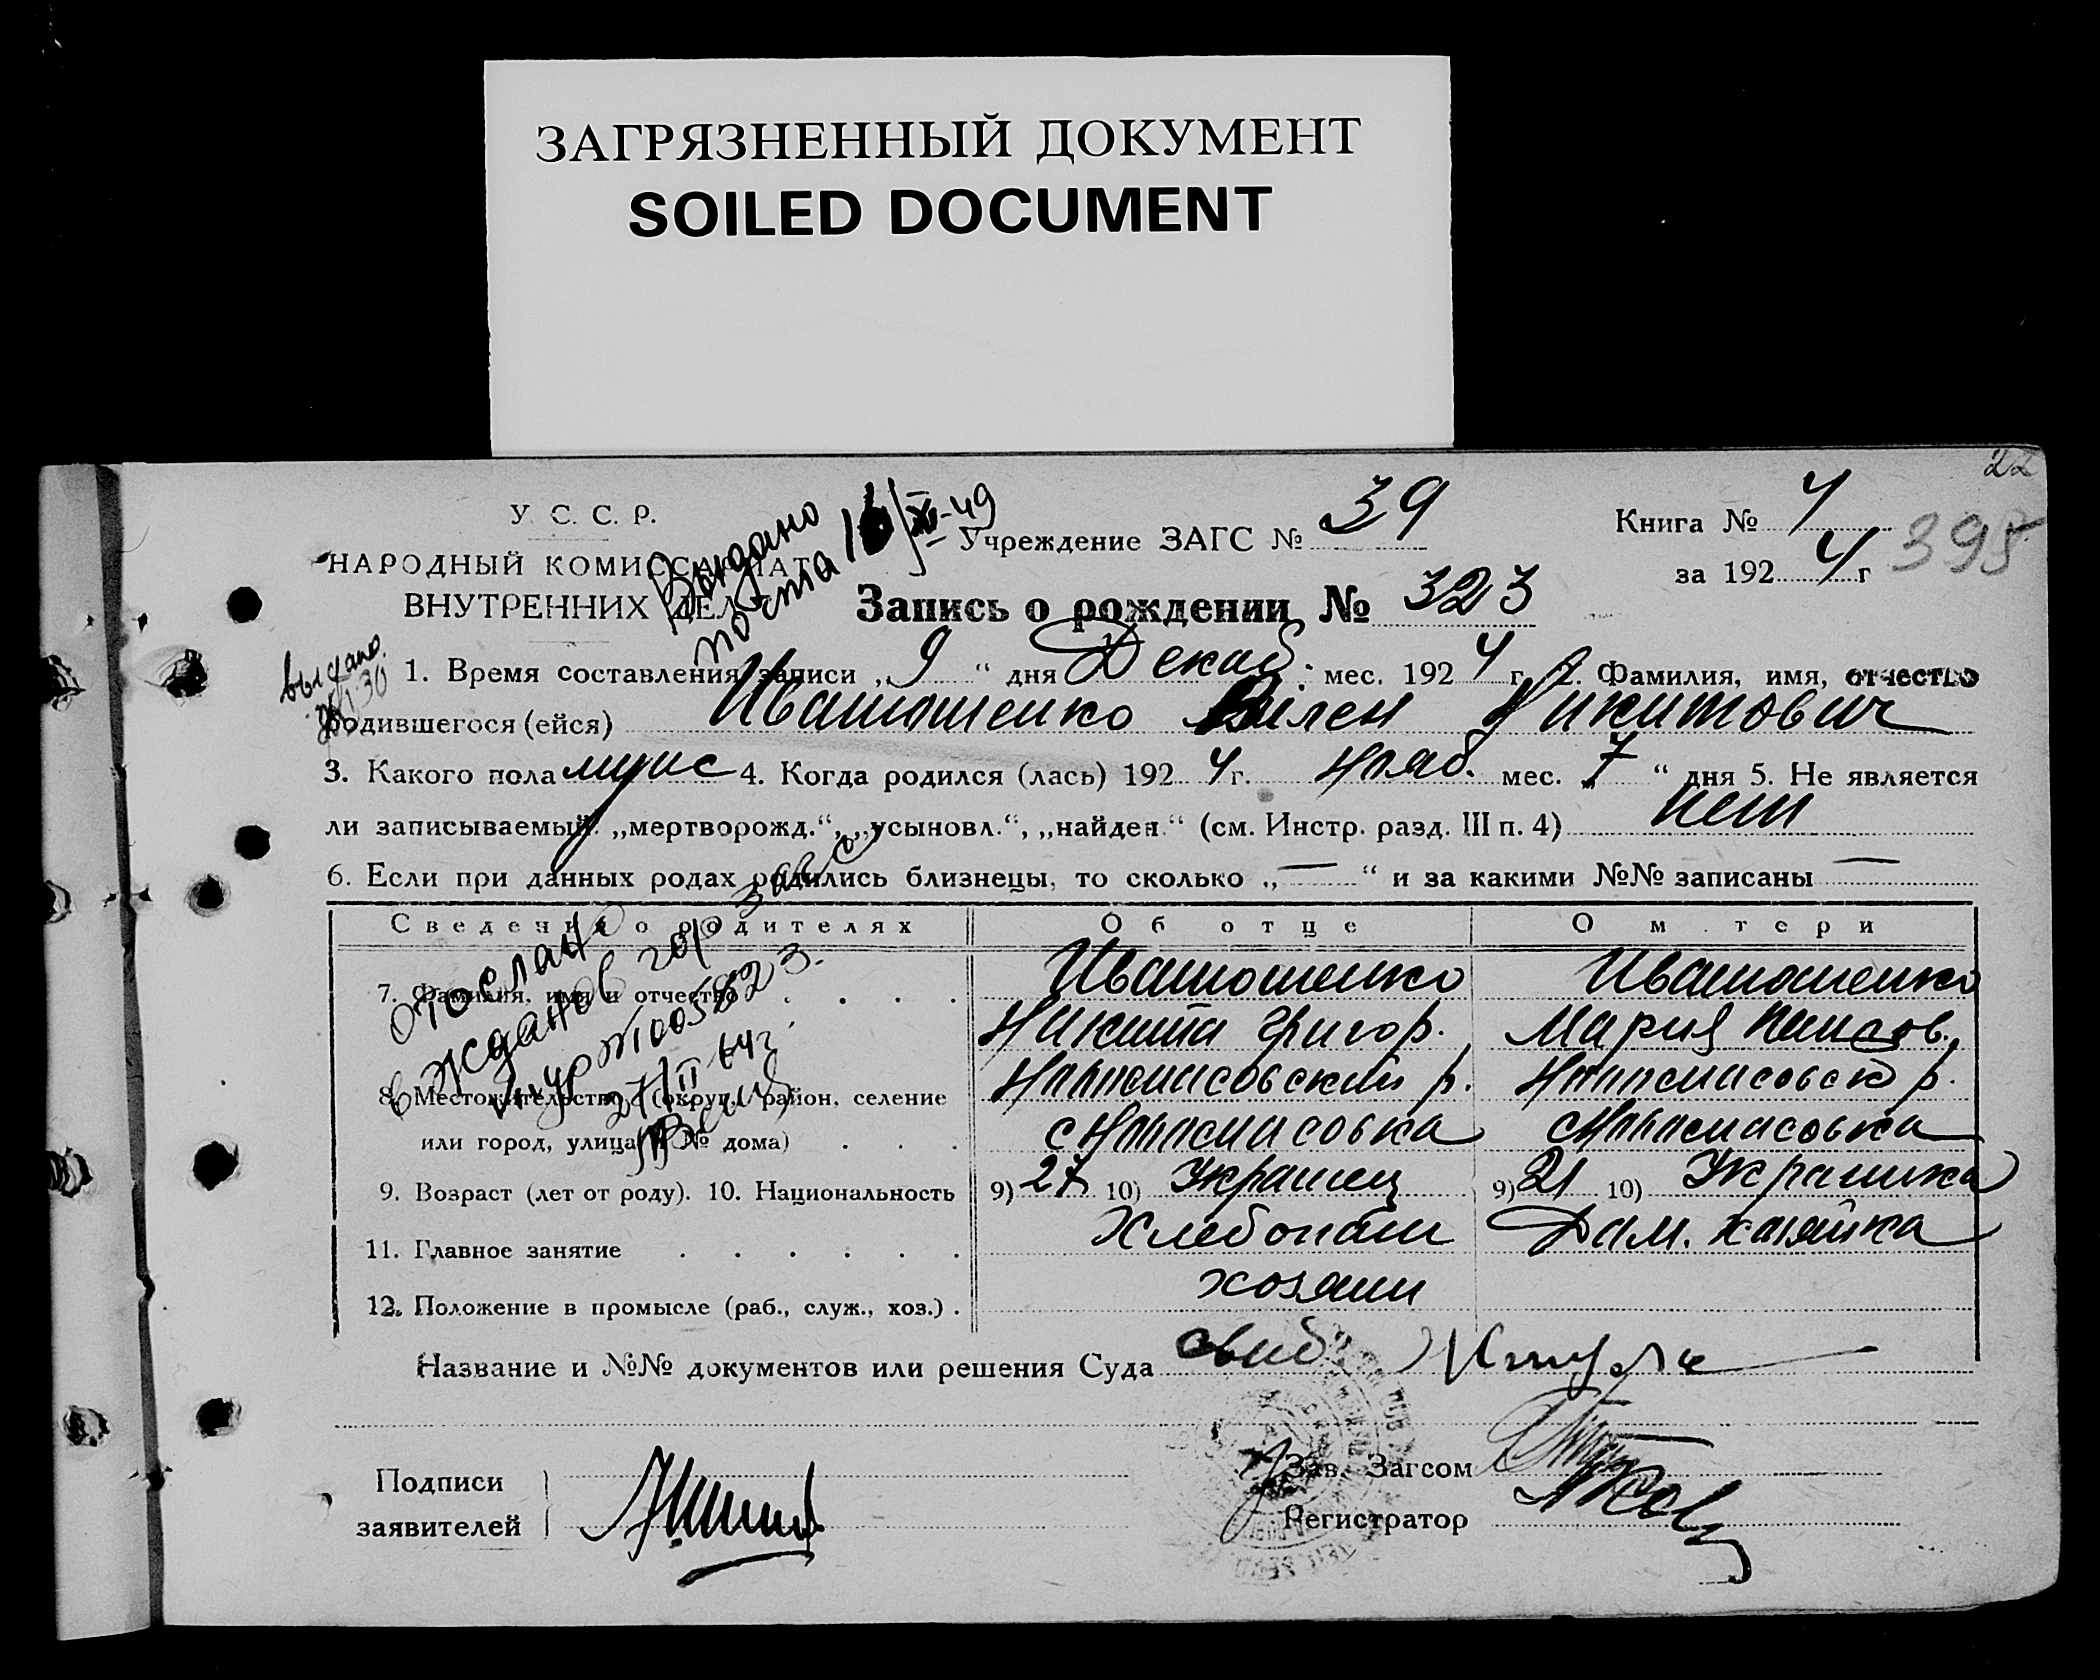 ЗАГРЯЗНЕННЫЙ ДОКУМЕНТ
SOILED DOCUMENT
22
У. С. С. Р.
НАРОДНЫЙ КОМИССАРИАТ
ВНУТРЕННИХ ДЕЛ
Выдано
почта 16/XI-49
Учреждение ЗАГС № 39
Книга № 4
за 1924 г
395
Запись о рождении № 323
выдано.
1. Время составления записи „9“ дня Декаб. мес. 1924 г. 2. Фамилия, имя, отчество
родившегося (ейся) Иватошенко Вілен Никитович
3. Какого пола мужс 4. Когда родился (лась) 1924 г. Нояб. мес. 7 “ дня 5. Не является
ли записываемый „мертворожд.“, „усыновл.“, „найден.“ (см. Инстр. разд. III п. 4) нет
6. Если при данных родах родились близнецы, то сколько „—“ и за какими №№ записаны —
Сведения о родителях Об отце О матери
отослано
в Жданов гор загс
005823.
2/II 64г.
7. Фамилия, имя и отчество Иватошенко Иватошенко
Никита Григор. Мария
8. Местожительство (округ, район, селение
или город, улица и № дома)
9. Возраст (лет от роду). 10. Национальность 9) 27 10) Украинец 9) 21 10) Украинка
11. Главное занятие Хлебопаш Дом. хозяйка
12. Положение в промысле (раб., служ., хоз.) хозяин
Название и №№ документов или решения Суда
Подписи
заявителей
Зав. Загсом
Регистратор